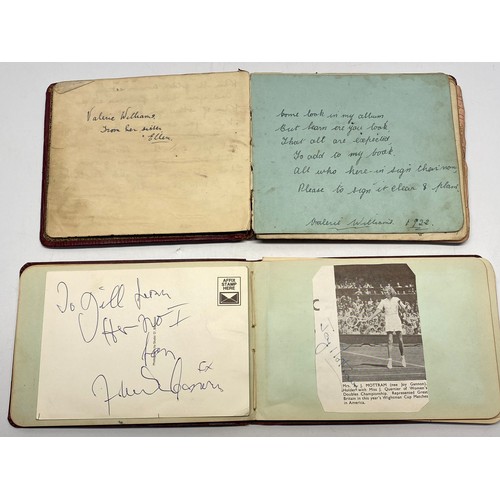 Valerie Williams
From her sister
Ellen
Come look in my album
But learn ere you look
That all are expected
To add to my book
All who here-in sign their
Please to sign it clear & plain
Valerie Williams 1922
AFFIX
STAMP
HERE
To Jill from
Her No 1
fan
x
Joy
Mrs. J. MOTTRAM (nee Joy Gannon),
Holder with Miss J. Quertier of Women's
Doubles Championship. Represented Great
Britain in this year's Wightman Cup Matches
in America.